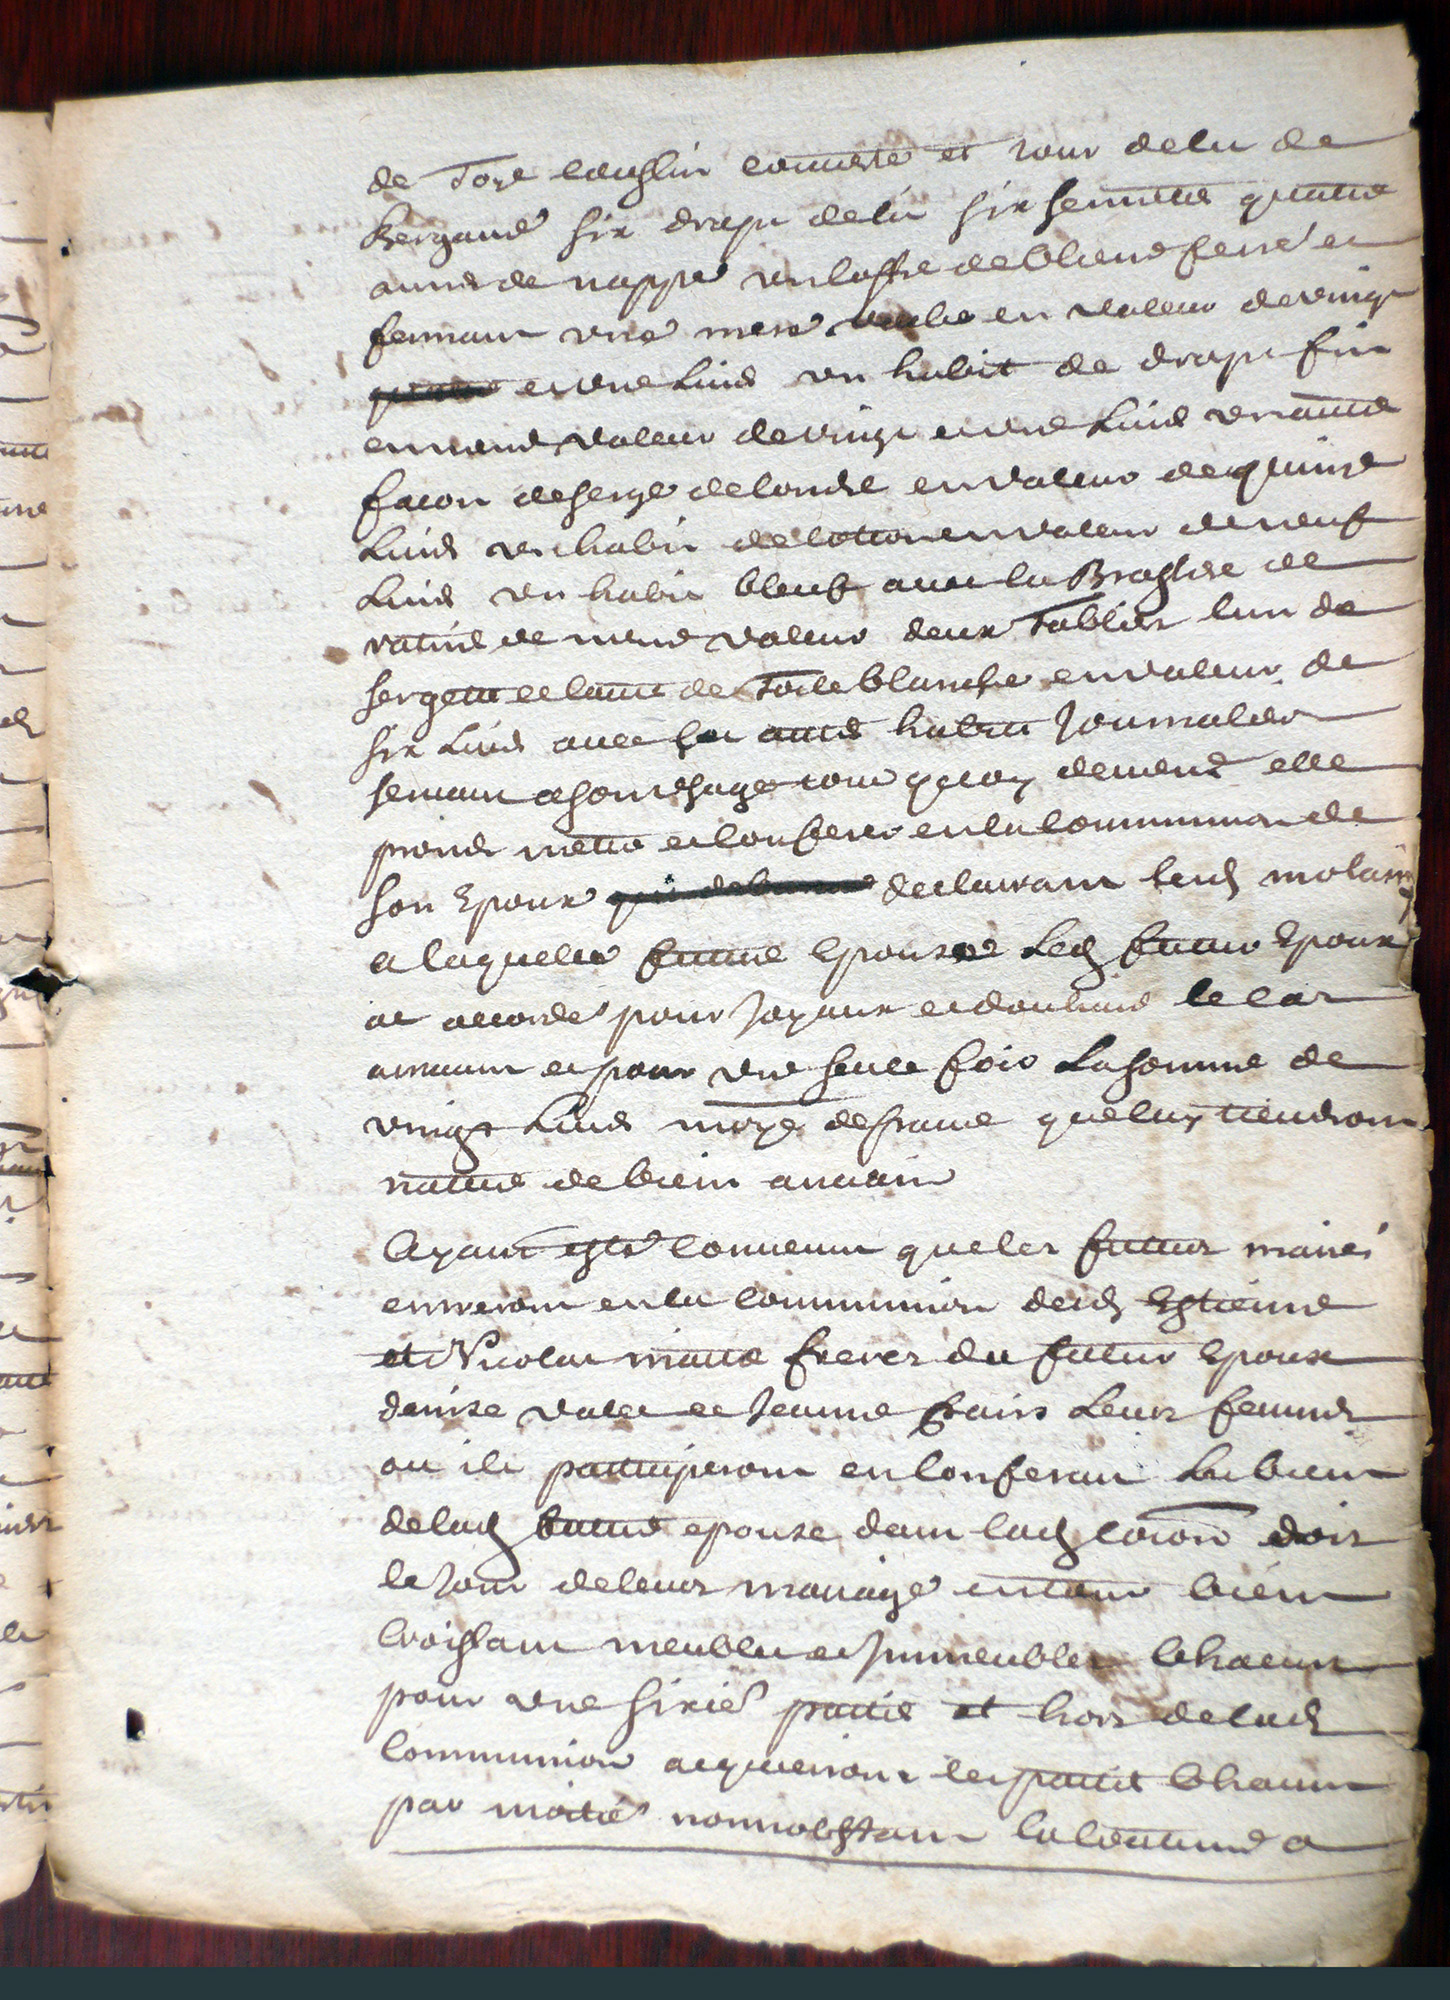 de toye coussin couverte et tour de lit de
Bergame six draps de lit six serviette quattre
aunes de nappe un coffre de blanc ferré et
fermant une mere vache en valeur de vingt
et une livre un habit de drapt fin
en mesme valeur de vingt et une livre un autre
facon de serge de londre en valeur de quinze
livre un habit de cotton en valeur de neuf
livre un habit bleuf avec la Brassiere de
ratine de mesme valeur deux tablier l'un de
sergette et l'autre de toile blanche en valeur de
six livre avec ses autre habits journalier
servant a son usage tout quoy demeure elle
promet mettre et conferer en la communion de
son Epoux declairant lesd
a laquelle future Epouse led futur Epoux
at accordé pour joyaux et le cas
arrivant et pour une seule fois la somme de
vingt livre de france que luy tiendront
nature de bien ancain
Ayant esté convenut que les futur mariés
entreront en la communion desd Estienne
et Nicolas frerer du futur Epoux
denise et Jeanne leurs femmes
ou ils participeront en conferant les bient
de lad future epouse dans lad doit
le jour de leurs mariage en tout bient
croissant meubles et Immeubles Chacun
pour une sixié partie et hors de lad
communion acquerront les partie Chacun
par moitié nonnobstant la coutume a